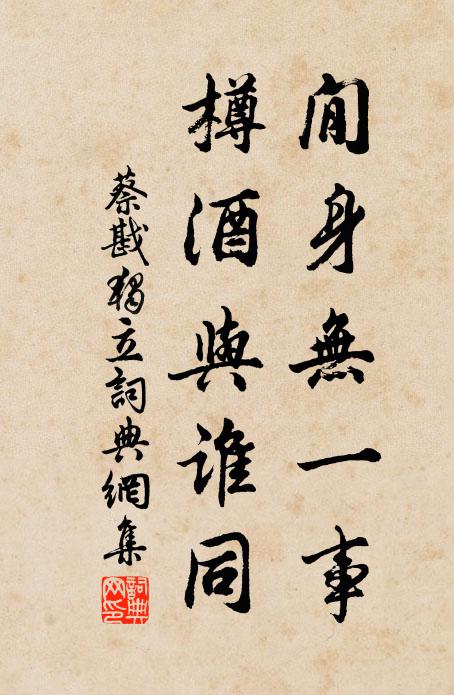 閒身無一事
樽酒與誰同
蔡戡獨立詞典網集
詞典網印